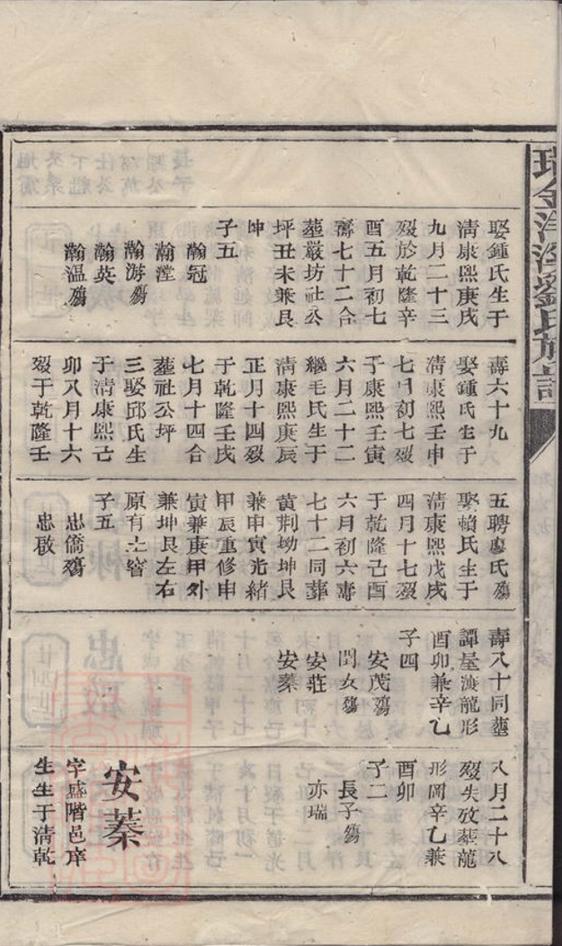 娶鍾氏生于
清康熙庚戌
九月二十三
歿於乾隆辛
酉五月初七
壽七十二合
塟嚴坊社公
坪丑未兼艮
坤
子五
瀚冠
瀚瀅
瀚游殤
瀚英
瀚溫殤
壽六十九
娶鍾氏生于
清康熙壬申
七月初七歿
于康熙壬寅
六月二十二
繼毛氏生于
清康熙庚辰
正月十四歿
于乾隆壬戌
七月十四合
塟社公坪
三娶邱氏生
于清康熙己
卯八月十六
歿于乾隆壬
五聘廖氏殤
娶賴氏生于
清康熙戊戌
四月十七歿
于乾隆己酉
六月初六壽
七十二同塟
黄荆坳坤艮
兼申寅光緒
甲辰重修申
寅兼庚甲外
兼坤艮左右
原有土窖
子五
忠僑殤
忠啟
壽八十同塟
譚屋渡龍形
酉卯兼辛乙
子四
安茂殤
閏女殤
安莊
安蓁
八月二十八
歿失攷塟龍
形岡辛乙兼
酉卯
子二
長子殤
亦瑞
安蓁
字盛階邑庠
生生于清乾